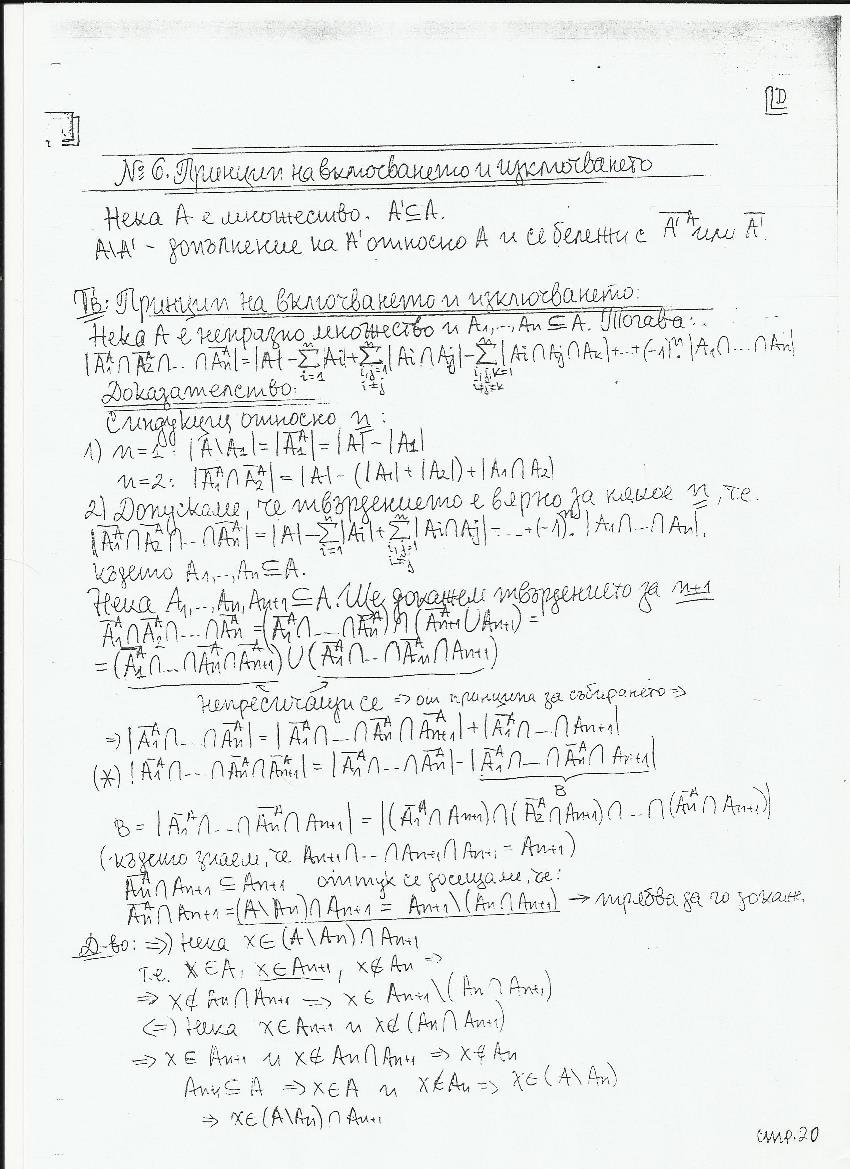 № 6. Принцип на включването и изключването
Нека A е множество. A'⊆A.
A\A' - допълнение на A' относно A и се бележи с A̅'ᴬ или A̅'.
Тв: Принцип на включването и изключването:
Нека A е непразно множество и A₁,..,Aₙ ⊆ A. Тогава:
|A̅₁ᴬ∩A̅₂ᴬ∩...∩A̅ₙᴬ| = |A| - ∑ⁿᵢ₌₁|Aᵢ| + ∑ⁿᵢ,ⱼ₌₁ ᵢ≠ⱼ |Aᵢ∩Aⱼ| - ∑ⁿᵢ,ⱼ,ₖ₌₁ ᵢ≠ⱼ≠ₖ |Aᵢ∩Aⱼ∩Aₖ| + ... + (-1)ⁿ.|A₁∩...∩Aₙ|
Доказателство:
С индукция относно n:
1) n=1: |A\A₁| = |A̅₁ᴬ| = |A| - |A₁|
n=2: |A̅₁ᴬ∩A̅₂ᴬ| = |A| - (|A₁|+|A₂|) + |A₁∩A₂|
2) Допускаме, че твърдението е вярно за някое n, т.е.
|A̅₁ᴬ∩A̅₂ᴬ∩...∩A̅ₙᴬ| = |A| - ∑ⁿᵢ₌₁|Aᵢ| + ∑ⁿᵢ,ⱼ₌₁ ᵢ≠ⱼ |Aᵢ∩Aⱼ| - ... + (-1)ⁿ.|A₁∩...∩Aₙ|,
където A₁,..,Aₙ ⊆ A.
Нека A₁,..,Aₙ,Aₙ₊₁ ⊆ A. Ще докажем твърдението за n+1
A̅₁ᴬ∩A̅₂ᴬ∩...∩A̅ₙᴬ = (A̅₁ᴬ∩...∩A̅ₙᴬ)∩(A̅ₙ₊₁ᴬ∪Aₙ₊₁) =
= (A̅₁ᴬ∩...∩A̅ₙᴬ∩A̅ₙ₊₁ᴬ)∪(A̅₁ᴬ∩...∩A̅ₙᴬ∩Aₙ₊₁)
Непресичащи се => от принципа за събирането =>
=> |A̅₁ᴬ∩...∩A̅ₙᴬ| = |A̅₁ᴬ∩...∩A̅ₙᴬ∩A̅ₙ₊₁ᴬ| + |A̅₁ᴬ∩...∩Aₙ₊₁|
(*) |A̅₁ᴬ∩...∩A̅ₙᴬ∩A̅ₙ₊₁ᴬ| = |A̅₁ᴬ∩...∩A̅ₙᴬ| - |A̅₁ᴬ∩...∩A̅ₙᴬ∩Aₙ₊₁|
B
B = |A̅₁ᴬ∩...∩A̅ₙᴬ∩Aₙ₊₁| = |(A̅₁ᴬ∩Aₙ₊₁)∩(A̅₂ᴬ∩Aₙ₊₁)∩...∩(A̅ₙᴬ∩Aₙ₊₁)|
(където знаем, че Aₙ₊₁∩...∩Aₙ₊₁∩Aₙ₊₁ = Aₙ₊₁)
A̅ₙᴬ∩Aₙ₊₁ ⊆ Aₙ₊₁ оттук се досещаме, че:
A̅ₙᴬ∩Aₙ₊₁ = (A\Aₙ)∩Aₙ₊₁ = Aₙ₊₁\(Aₙ∩Aₙ₊₁) → трябва да го докаж.
Д-во: =>) Нека x∈(A\Aₙ)∩Aₙ₊₁
т.е. x∈A, x∈Aₙ₊₁, x∉Aₙ =>
=> x∉Aₙ∩Aₙ₊₁ => x∈Aₙ₊₁\(Aₙ∩Aₙ₊₁)
(<=) Нека x∈Aₙ₊₁ и x∉(Aₙ∩Aₙ₊₁)
=> x∈Aₙ₊₁ и x∉Aₙ∩Aₙ₊₁ => x∉Aₙ
Aₙ₊₁⊆A => x∈A и x∉Aₙ => x∈(A\Aₙ)
=> x∈(A\Aₙ)∩Aₙ₊₁
стр.20